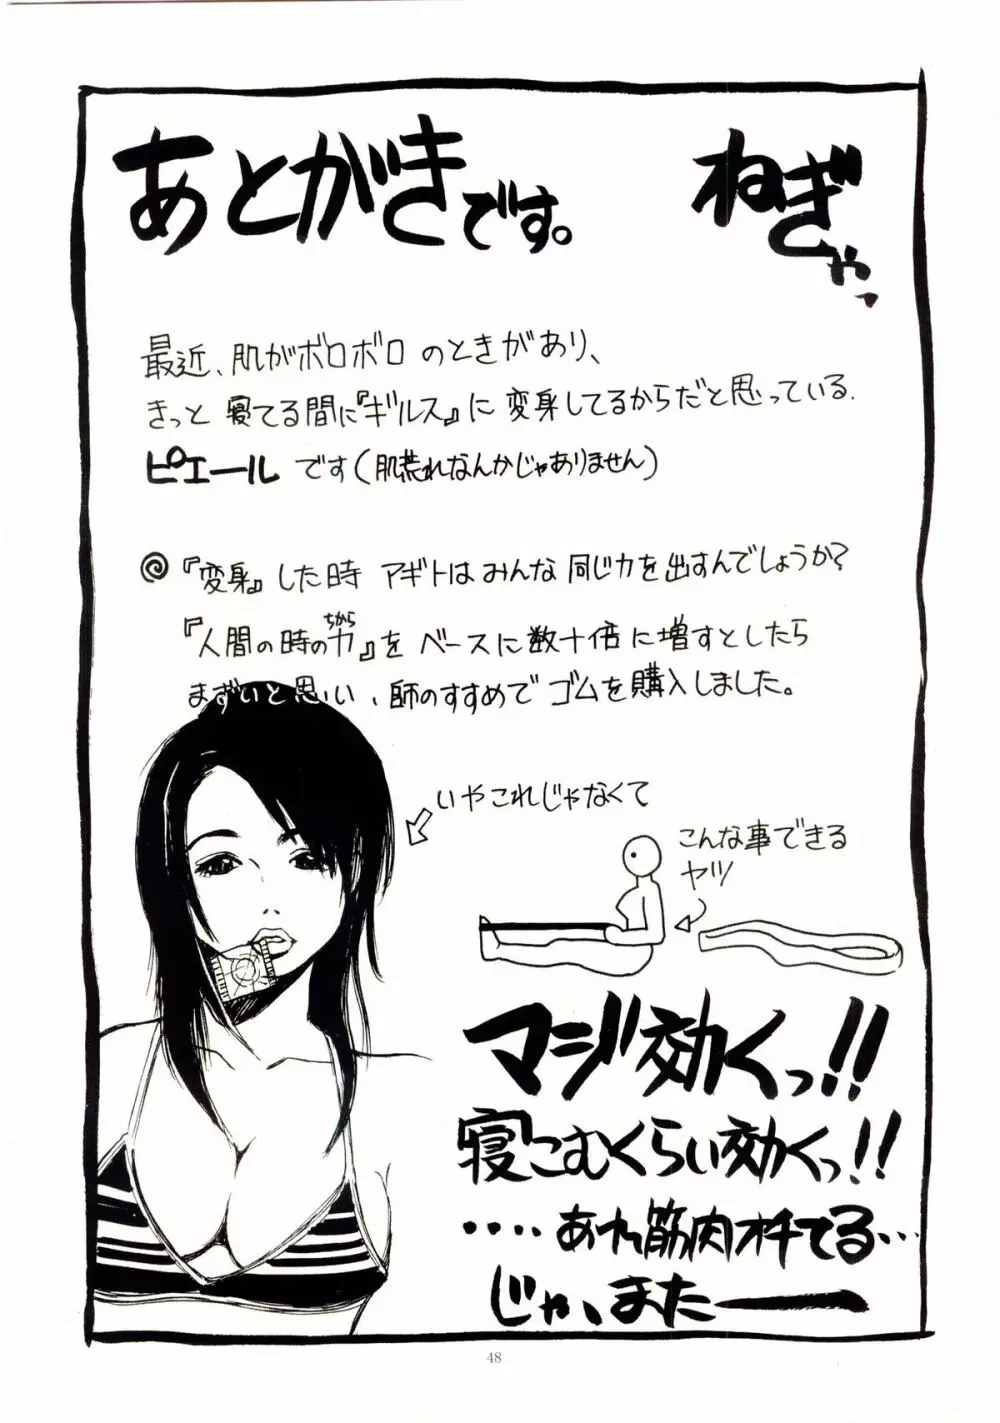 あとがきです。
ねぎゃっ
最近、肌がボロボロのときがあり、
きっと寝てる間に『ギルス』に変身してるからだと思っている.
ピエール です(肌荒れなんかじゃありません)
『変身』した時 アギトはみんな同じ力を出すんでしょうか?
『人間の時の力』をベースに数十倍に増すとしたら
ちから
まずいと思い、師のすすめでゴムを購入しました。
いやこれじゃなくて
こんな事できる
ヤツ
マジ効くっ!!
寝こむくらい効くっ!!
・・・・あれ筋肉オチてる・・・
じゃ、またー
48